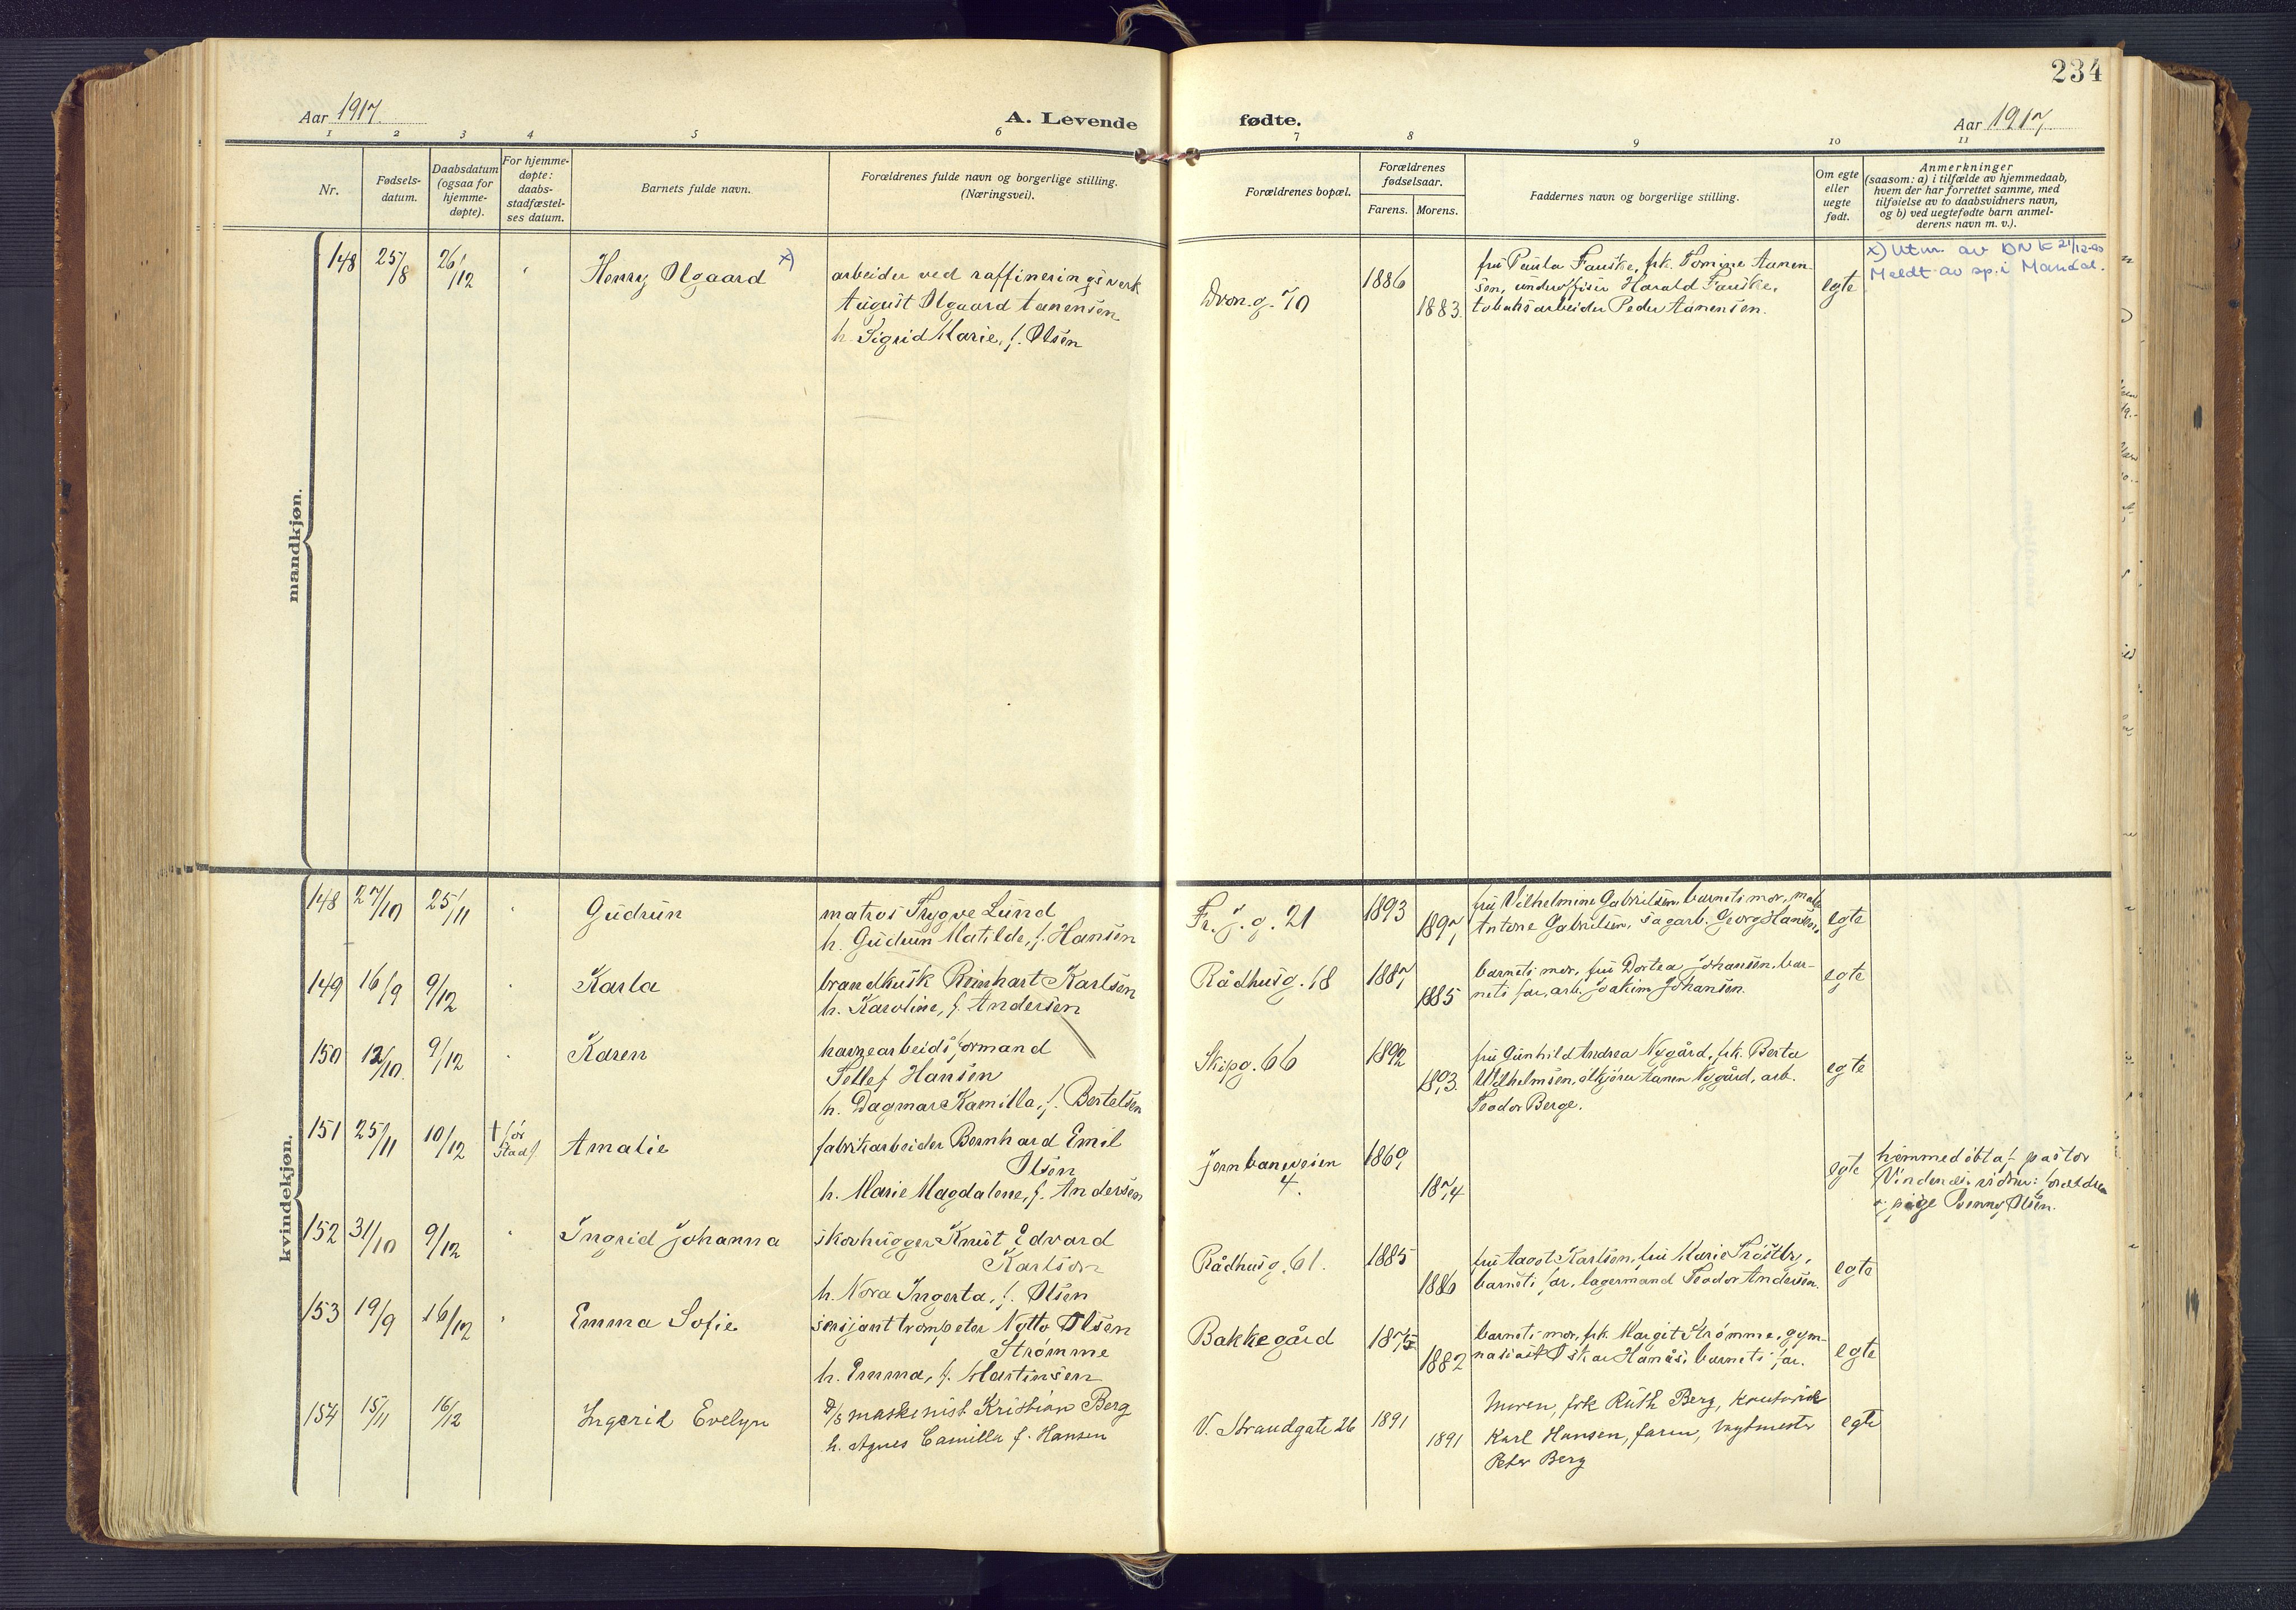 234
Aar 1917. A. Levende fødte. Aar 1917.
1 2 3 4 5 6 7 8 9 10 11
Nr.
Fødsels-
datum.
Daabsdatum
(ogsaa for
hjemme-
døpte).
For hjemme-
døpte:
daabs-
stadfæstel-
ses datum.
Barnets fulde navn.
Forældrenes fulde navn og borgerlige stilling.
(Næringsvei).
Forældrenes bopæl.
Forældrenes
fødselsaar.
Farens. Morens.
Faddernes navn og borgerlige stilling.
Om egte
eller
uegte
født.
Anmerkninger
(saasom: a) i tilfælde av hjemmedaab,
hvem der har forrettet samme, med
tilføielse av to daabsvidners navn,
og b) ved uegtefødte barn anmel-
derens navn m. v.).
mandkjøn.
148 25/8 26/12 " Henry Olgaard x)
arbeider ved raffineringsverk
August Olgaard Aanensen
h. Sigrid Marie, f. Olsen
Dron.g. 70
1886
1883.
fru Paula Fauske, frk. Tomine Aanen-
sen, underoffiser Harald Fauske,
tobaksarbeider Peder Aanensen.
egte
x) Utm. av DNK 21/12-90
Meldt av sp. i Mandal.
kvindekjøn.
148 27/10 25/11 " Gudrun
matros Trygve Lund
h. Gudrun Matilde, f. Hansen
Fr. j. g. 21
1893
1897
fru Vilhelmine Gabrielsen, barnets mor,
Antone Gabrielsen, sagarb. Georg Hansen
egte
149 16/9 9/12 " Karla
brandkusk Reinhart Karlsen
h. Karoline, f. Andersen
Rådhusg. 18
1887
1885
barnets mor, fru Dortea Johansen, bar-
nets far, arb. Joakim Johansen.
egte
150 12/10 9/12 " Karen
havnearbeidsformand
Hansen
h. Dagmar Kamilla, f. Bertelsen
Skipg. 66
1892
1893
fru Gunhild Andrea Nygård, frk. Berta
Wilhelmsen, ølkjører Aanen Nygård, arb.
Teodor Berge.
egte
151 25/11 10/12 † før
Stadf
Amalie
fabrikarbeider Bernhard Emil
Olsen
h. Marie Magdalene, f. Andersen
Jernbaneveien
4.
1869
1874
egte
hjemmedøbt af pastor
vidner: forældre
pige Benny Olsen.
152 31/10 9/12 " Ingrid Johanna
skovhugger Knut Edvard
Karlson
h. Nora Ingerta, f. Olsen
Rådhusg. 61.
1885
1886
fru Aagot Karlsen, fru Marie Trøstby,
barnets far, lagermand Teodor Andersen.
egte
153 19/9 16/12 " Emma Sofie
sersjanttrompeter Notto Olsen
Strømme
h. Emma, f. Martinsen
Bakkegård
1875
1882
barnets mor, frk. Margit Strømme, gym-
nasiast Oskar Hanås, barnets far.
egte
154 15/11 16/12 Ingerid Evelyn
D/S maskinist Kristian Berg
h. Agnes Camilla f. Hansen
V. Strandgate 26
1891
1891
Moren, frk Ruth Berg,
Karl Hansen, faren, vagtmester
Peter Berg
egte